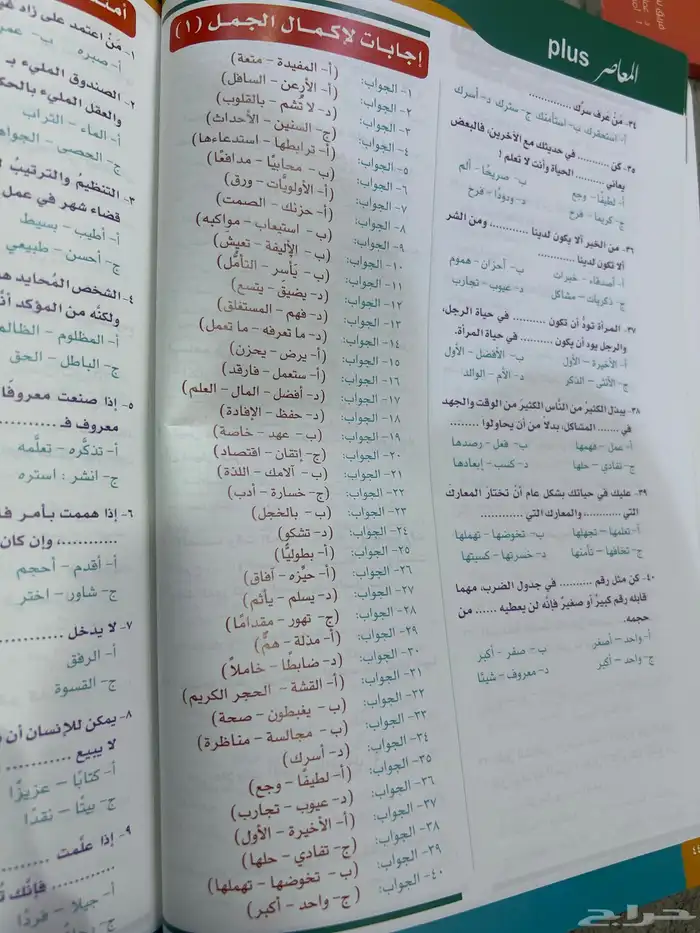 المعاصر plus
٣٤- مَنْ عَرف سرَّك ............
أ- استحقرك ب- استأمنك ج- سترك د- أسرك
٣٥- كن .......... في حديثك مع الآخرين، فالبعض
يعاني .......... الحياة وأنت لا تعلم !
أ- لطيفًا – وجع ب- صريحًا – ألم
ج- كريما – فرح د- ودودًا – فرح
٣٦- من الخير ألا يكون لدينا .........، ومن الشر
ألا تكون لدينا ............
أ- أصدقاء – خبرات ب- أحزان – هموم
ج- ذكريات – مشاكل د- عيوب – تجارب
٣٧- المرأة تودُّ أن تكون .......... في حياة الرجل،
والرجل يود أن يكون .......... في حياة المرأة.
أ- الأخيرة – الأول ب- الأفضل – الأول
ج- الأنثى – الذكر د- الأم – الوالد
٣٨- يبذل الكثيرُ من النَّاس الكثيرَ من الوقت والجهد
في ........ المشاكل، بدلًا من أن يحاولوا ........
أ- عمل – فهمها ب- فعل – رصدها
ج- تفادي – حلها د- كسب – إبعادها
٣٩- عليك في حياتك بشكل عام أنْ تختارَ المعاركَ
التي ..........، والمعارك التي ..........
أ- تعلمها – تجهلها ب- تخوضها – تهملها
ج- تخافها – تأمنها د- خسرتها – كسبتها
٤٠- كن مثل رقم .......... في جدول الضرب، مهما
قابله رقم كبيرٌ أو صغيرٌ فإنَّه لن يعطيه ...... من
حجمه.
أ- واحد – أصغر ب- صفر – أكبر
ج- واحد – أكبر د- معروف – شيئًا
إجابات لإكمال الجمل (١)
١- الجواب: (أ- المفيدة – متعة)
٢- الجواب: (أ- الأرعن – السافل)
٣- الجواب: (د- لا تُشم – بالقلوب)
٤- الجواب: (ج- السنين – الأحداث)
٥- الجواب: (أ- ترابطها – استدعاءها)
٦- الجواب: (ب – محابيًا – مدافعًا)
٧- الجواب: (أ- الأولويَّات – ورق)
٨- الجواب: (أ- حزنك – الصمت)
٩- الجواب: (ب – استيعاب – مواكبه)
١٠- الجواب: (ب – الأليفة – تعيش)
١١- الجواب: (ب – يَأسر – التأمُّل)
١٢- الجواب: (د- يضيق – يتسع)
١٣- الجواب: (د- فهم – المستغلق)
١٤- الجواب: (د- ما تعرفه – ما تعمل)
١٥- الجواب: (أ- يرض – يحزن)
١٦- الجواب: (أ – ستعمل – فارقد)
١٧- الجواب: (د- أفضل – المال – العلم)
١٨- الجواب: (د- حفظ – الإفادة)
١٩- الجواب: (ب – عهد – خاصة)
٢٠- الجواب: (ج- إتقان – اقتصاد)
٢١- الجواب: (ب – آلامك – اللذة)
٢٢- الجواب: (ج- خسارة – أدب)
٢٣- الجواب: (ب – بالخجل)
٢٤- الجواب: (د- تشكو)
٢٥- الجواب: (أ- بطوليًّا)
٢٦- الجواب: (أ – حبْزه – آفاق)
٢٧- الجواب: (د- يسلم – يأثم)
٢٨- الجواب: (ج- تهور – مقدامًا)
٢٩- الجواب: (أ- مذلة – همٌّ)
٣٠- الجواب: (د- ضابطًا – خاملاً)
٣١- الجواب: (أ- القشة – الحجر الكريم)
٣٢- الجواب: (ب – يغبطون – صحة)
٣٣- الجواب: (ب – مجالسة – مناظرة)
٣٤- الجواب: (د- أسرك)
٣٥- الجواب: (أ- لطيفًا – وجع)
٣٦- الجواب: (د- عيوب – تجارب)
٣٧- الجواب: (أ- الأخيرة – الأول)
٣٨- الجواب: (ج- تفادي – حلها)
٣٩- الجواب: (ب – تخوضها – تهملها)
٤٠- الجواب: (ج- واحد – أكبر)
٤٤
١- مَنْ اعتمد على زاد
أ- صبره ب- عمره
٢- الصندوق المليء بـ
والعقل المليء بالحكمة
أ- الماء – التراب
ج- الحصى – الجواهر
٣- التنظيمُ والترتيبُ
قضاء شهر في عمل
أ- أطيب – بسيط
ج- أحسن – طبيعي
٤- الشخص المُحايد هو
ولكنَّه من المؤكد أنَّه
أ- المظلوم – الظالم
ج- الباطل – الحق
٥- إذا صنعت معروفًا
معروف فـ ..........
أ- تذكَّره – تعلَّمه
ج- انشر : استره
٦- إذا هممت بأمر فـ
..........، وإن كان
أ- أقدم – أحجم
ج- شاور – اختر
٧- لا يدخل ..........
أ- الرفق
ج- القسوة
٨- يمكن للإنسان أن
لا يبيع ..........
أ- كتابًا – عزيزًا
ج- بيتًا – نقدًا
٩- إذا علَّمت ........
.......... فإنَّك
أ- جيلا – فردًا
حراج